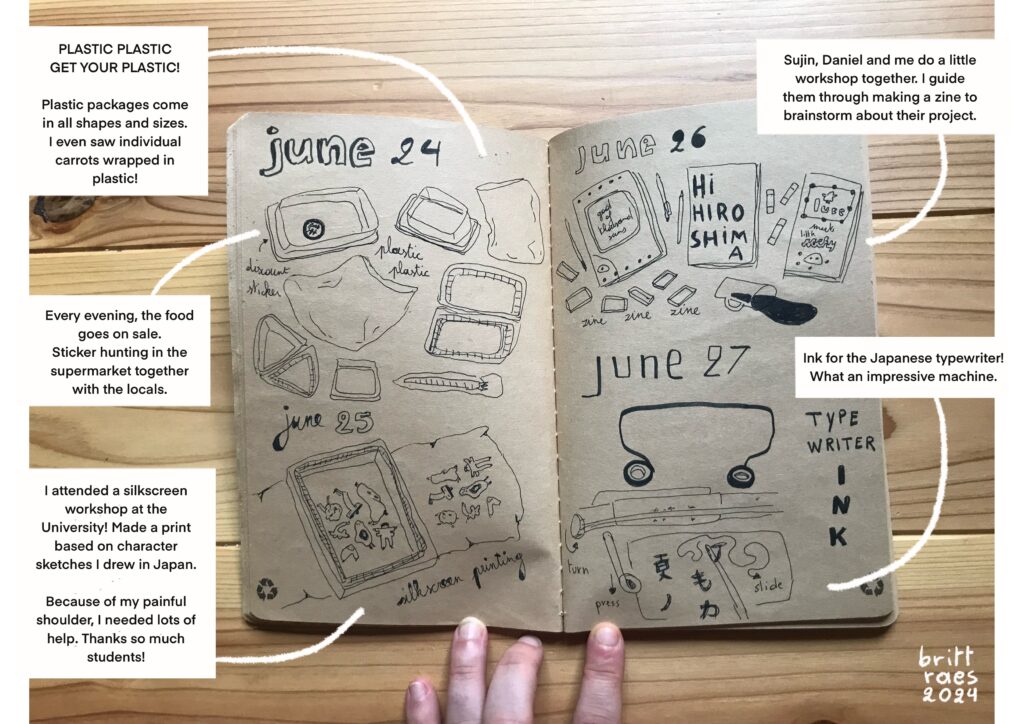 PLASTIC PLASTIC
GET YOUR PLASTIC!
Plastic packages come
in all shapes and sizes.
I even saw individual
carrots wrapped in
plastic!
Every evening, the food
goes on sale.
Sticker hunting in the
supermarket together
with the locals.
I attended a silkscreen
workshop at the
University! Made a print
based on character
sketches I drew in Japan.
Because of my painful
shoulder, I needed lots of
help. Thanks so much
students!
june 24
discount
sticker
plastic
plastic
june 25
silkscreen printing
june 26
thousand
suns
Hi
HIRO
SHIM
A
zine zine zine
june 27
TYPE
WRITER
INK
turn
press
slide
夏 も
ノ カ
Sujin, Daniel and me do a little
workshop together. I guide
them through making a zine to
brainstorm about their project.
Ink for the Japanese typewriter!
What an impressive machine.
britt
raes
2024